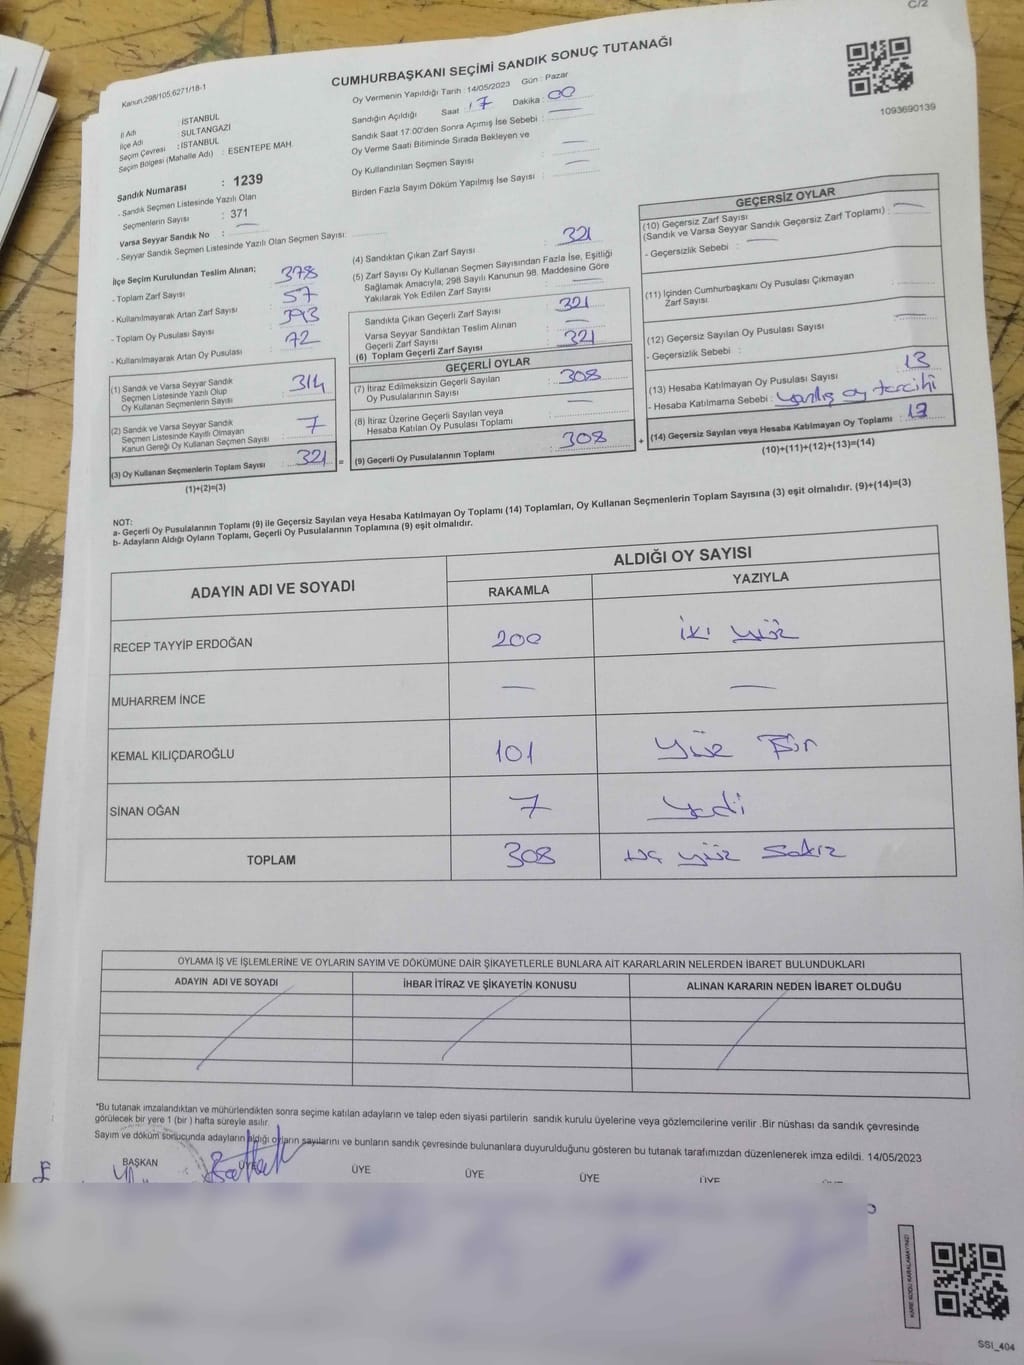 C/2
Kanun,298/105,6271/18-1
CUMHURBAŞKANI SEÇİMİ SANDIK SONUÇ TUTANAĞI
1093690139
İl Adı : İSTANBUL
İlçe Adı : SULTANGAZİ
Seçim Çevresi : İSTANBUL
Seçim Bölgesi (Mahalle Adı) : ESENTEPE MAH.
Sandık Numarası : 1239
- Sandık Seçmen Listesinde Yazılı Olan
Seçmenlerin Sayısı : 371
Varsa Seyyar Sandık No : —
- Seyyar Sandık Seçmen Listesinde Yazılı Olan Seçmen Sayısı:
Oy Vermenin Yapıldığı Tarih : 14/05/2023 Gün : Pazar
Sandığın Açıldığı Saat : 17 Dakika : 00
Sandık Saat 17:00'den Sonra Açımış İse Sebebi : —
Oy Verme Saati Bitiminde Sırada Bekleyen ve
Oy Kullandırılan Seçmen Sayısı : —
Birden Fazla Sayım Döküm Yapılmış İse Sayısı : —
İlçe Seçim Kurulundan Teslim Alınan;
- Toplam Zarf Sayısı : 378
- Kullanılmayarak Artan Zarf Sayısı : 57
- Toplam Oy Pusulası Sayısı : 393
- Kullanılmayarak Artan Oy Pusulası : 72
(1) Sandık ve Varsa Seyyar Sandık
Seçmen Listesinde Yazılı Olup
Oy Kullanan Seçmenlerin Sayısı : 314
(2) Sandık ve Varsa Seyyar Sandık
Seçmen Listesinde Kayıtlı Olmayan
Kanun Gereği Oy Kullanan Seçmen Sayısı : 7
(3) Oy Kullanan Seçmenlerin Toplam Sayısı : 321 =
(1)+(2)=(3)
(4) Sandıktan Çıkan Zarf Sayısı : 321
(5) Zarf Sayısı Oy Kullanan Seçmen Sayısından Fazla İse, Eşitliği
Sağlamak Amacıyla, 298 Sayılı Kanunun 98. Maddesine Göre
Yakılarak Yok Edilen Zarf Sayısı : —
Sandıkta Çıkan Geçerli Zarf Sayısı : 321
Varsa Seyyar Sandıktan Teslim Alınan
Geçerli Zarf Sayısı : —
(6) Toplam Geçerli Zarf Sayısı : 321
GEÇERLİ OYLAR
(7) İtiraz Edilmeksizin Geçerli Sayılan
Oy Pusulalarının Sayısı : 308
(8) İtiraz Üzerine Geçerli Sayılan veya
Hesaba Katılan Oy Pusulası Toplamı : —
(9) Geçerli Oy Pusulalarının Toplamı : 308 +
GEÇERSİZ OYLAR
(10) Geçersiz Zarf Sayısı
(Sandık ve Varsa Seyyar Sandık Geçersiz Zarf Toplamı) : —
- Geçersizlik Sebebi : —
(11) İçinden Cumhurbaşkanı Oy Pusulası Çıkmayan
Zarf Sayısı :
(12) Geçersiz Sayılan Oy Pusulası Sayısı : —
- Geçersizlik Sebebi :
(13) Hesaba Katılmayan Oy Pusulası Sayısı : 13
- Hesaba Katılmama Sebebi : yanlış oy tercihi
(14) Geçersiz Sayılan veya Hesaba Katılmayan Oy Toplamı : 13
(10)+(11)+(12)+(13)=(14)
NOT:
a- Geçerli Oy Pusulalarının Toplamı (9) ile Geçersiz Sayılan veya Hesaba Katılmayan Oy Toplamı (14) Toplamları, Oy Kullanan Seçmenlerin Toplam Sayısına (3) eşit olmalıdır. (9)+(14)=(3)
b- Adayların Aldığı Oyların Toplamı, Geçerli Oy Pusulalarının Toplamına (9) eşit olmalıdır.
ADAYIN ADI VE SOYADI ALDIĞI OY SAYISI
RAKAMLA YAZIYLA
RECEP TAYYİP ERDOĞAN 200 iki yüz
MUHARREM İNCE — —
KEMAL KILIÇDAROĞLU 101 yüz Bir
SİNAN OĞAN 7 yedi
TOPLAM 308 üç yüz sekiz
OYLAMA İŞ VE İŞLEMLERİNE VE OYLARIN SAYIM VE DÖKÜMÜNE DAİR ŞİKAYETLERLE BUNLARA AİT KARARLARIN NELERDEN İBARET BULUNDUKLARI
ADAYIN ADI VE SOYADI İHBAR İTİRAZ VE ŞİKAYETİN KONUSU ALINAN KARARIN NEDEN İBARET OLDUĞU
*Bu tutanak imzalandıktan ve mühürlendikten sonra seçime katılan adayların ve talep eden siyasi partilerin sandık kurulu üyelerine veya gözlemcilerine verilir .Bir nüshası da sandık çevresinde
görülecek bir yere 1 (bir ) hafta süreyle asılır.
Sayım ve döküm sonucunda adayların aldığı oyların sayılarını ve bunların sandık çevresinde bulunanlara duyurulduğunu gösteren bu tutanak tarafımızdan düzenlenerek imza edildi. 14/05/2023
BAŞKAN ÜYE ÜYE ÜYE ÜYE ÜYE
KARE KODU KARALAMAYINIZ!
SSI_404